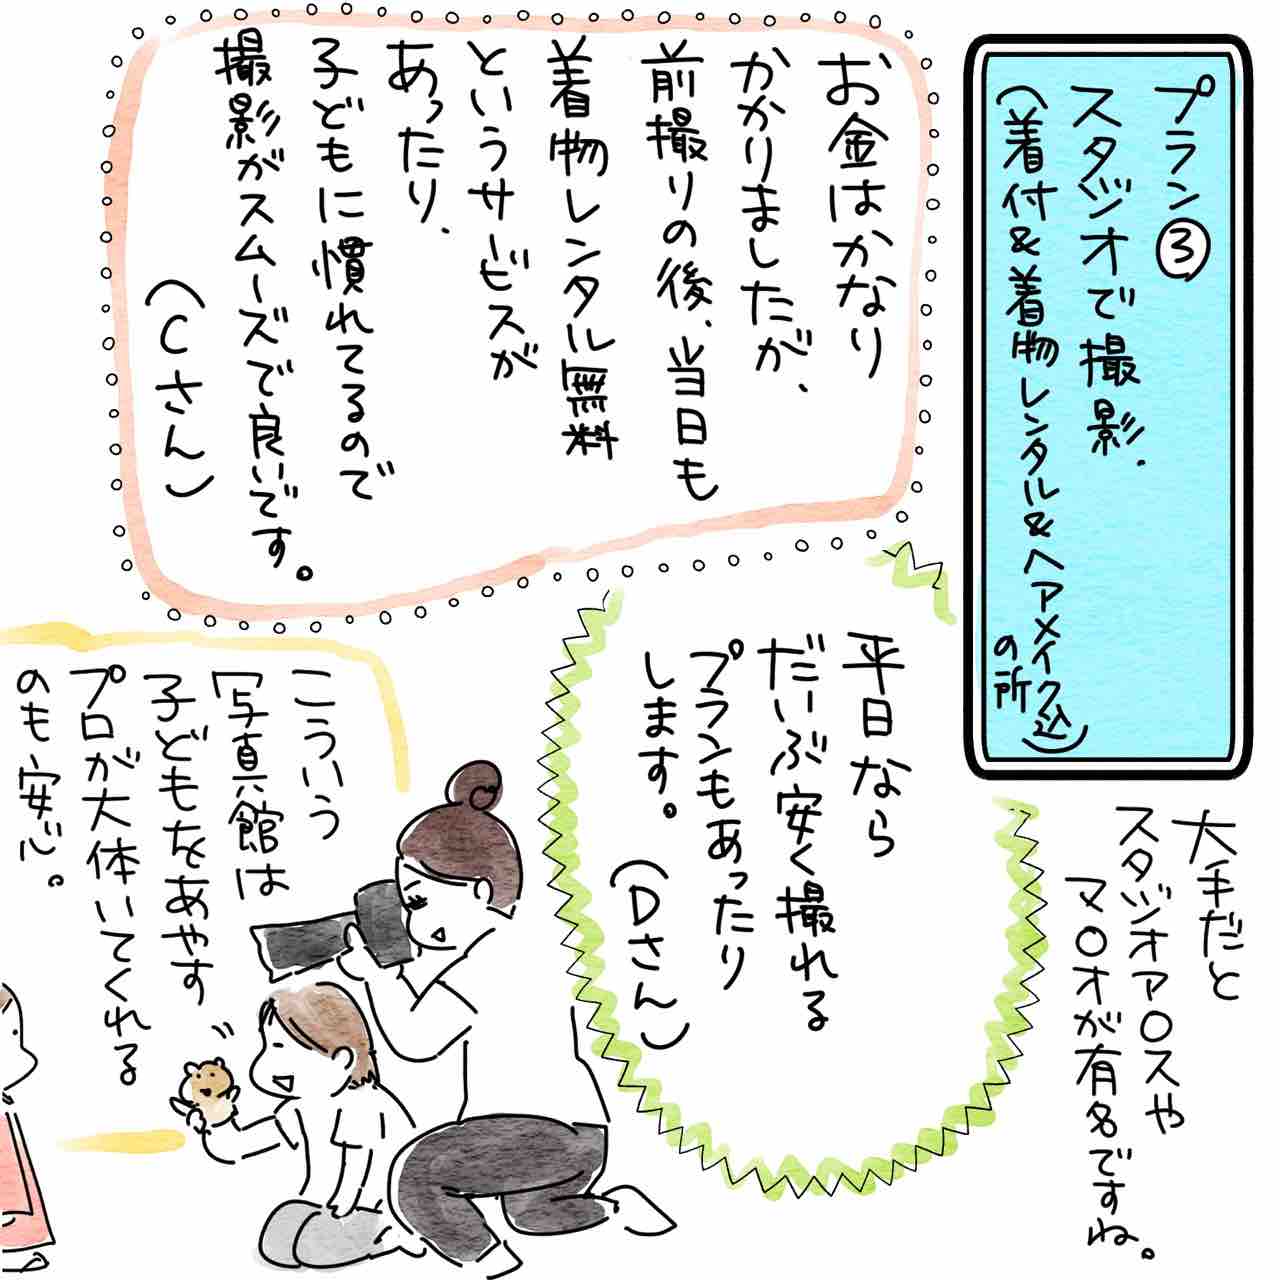 プラン③
スタジオで撮影.
(着付&着物レンタル&ヘアメイク込)
の所
大手だと
スタジオア〇スや
マ〇オが有名ですね。
お金はかなり
かかりましたが、
前撮りの後、当日も
着物レンタル無料
というサービスが
あったり、
子どもに慣れてるので
撮影がスムーズで良いです。
(Cさん)
平日なら
だいぶ安く撮れる
プランもあったり
します。
(Dさん)
こういう
写真館は
子どもをあやす
プロが大体いてくれる
のも安心。